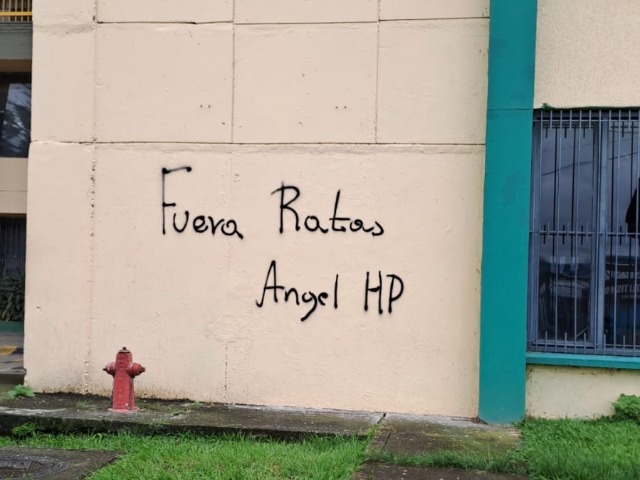 Fuera Ratas
Angel HP